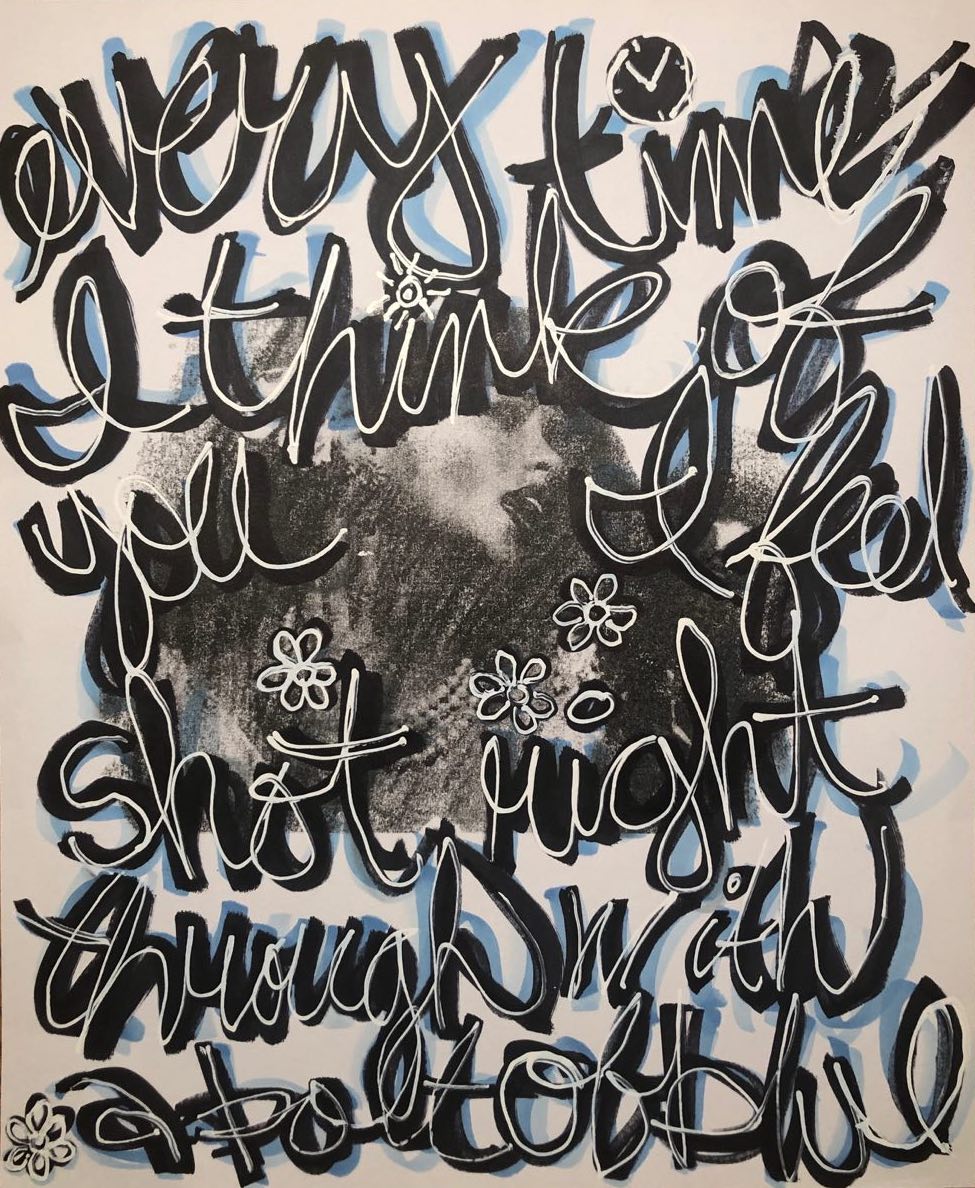 every time
I think of
you I feel
shot right
through with
a bolt of blue